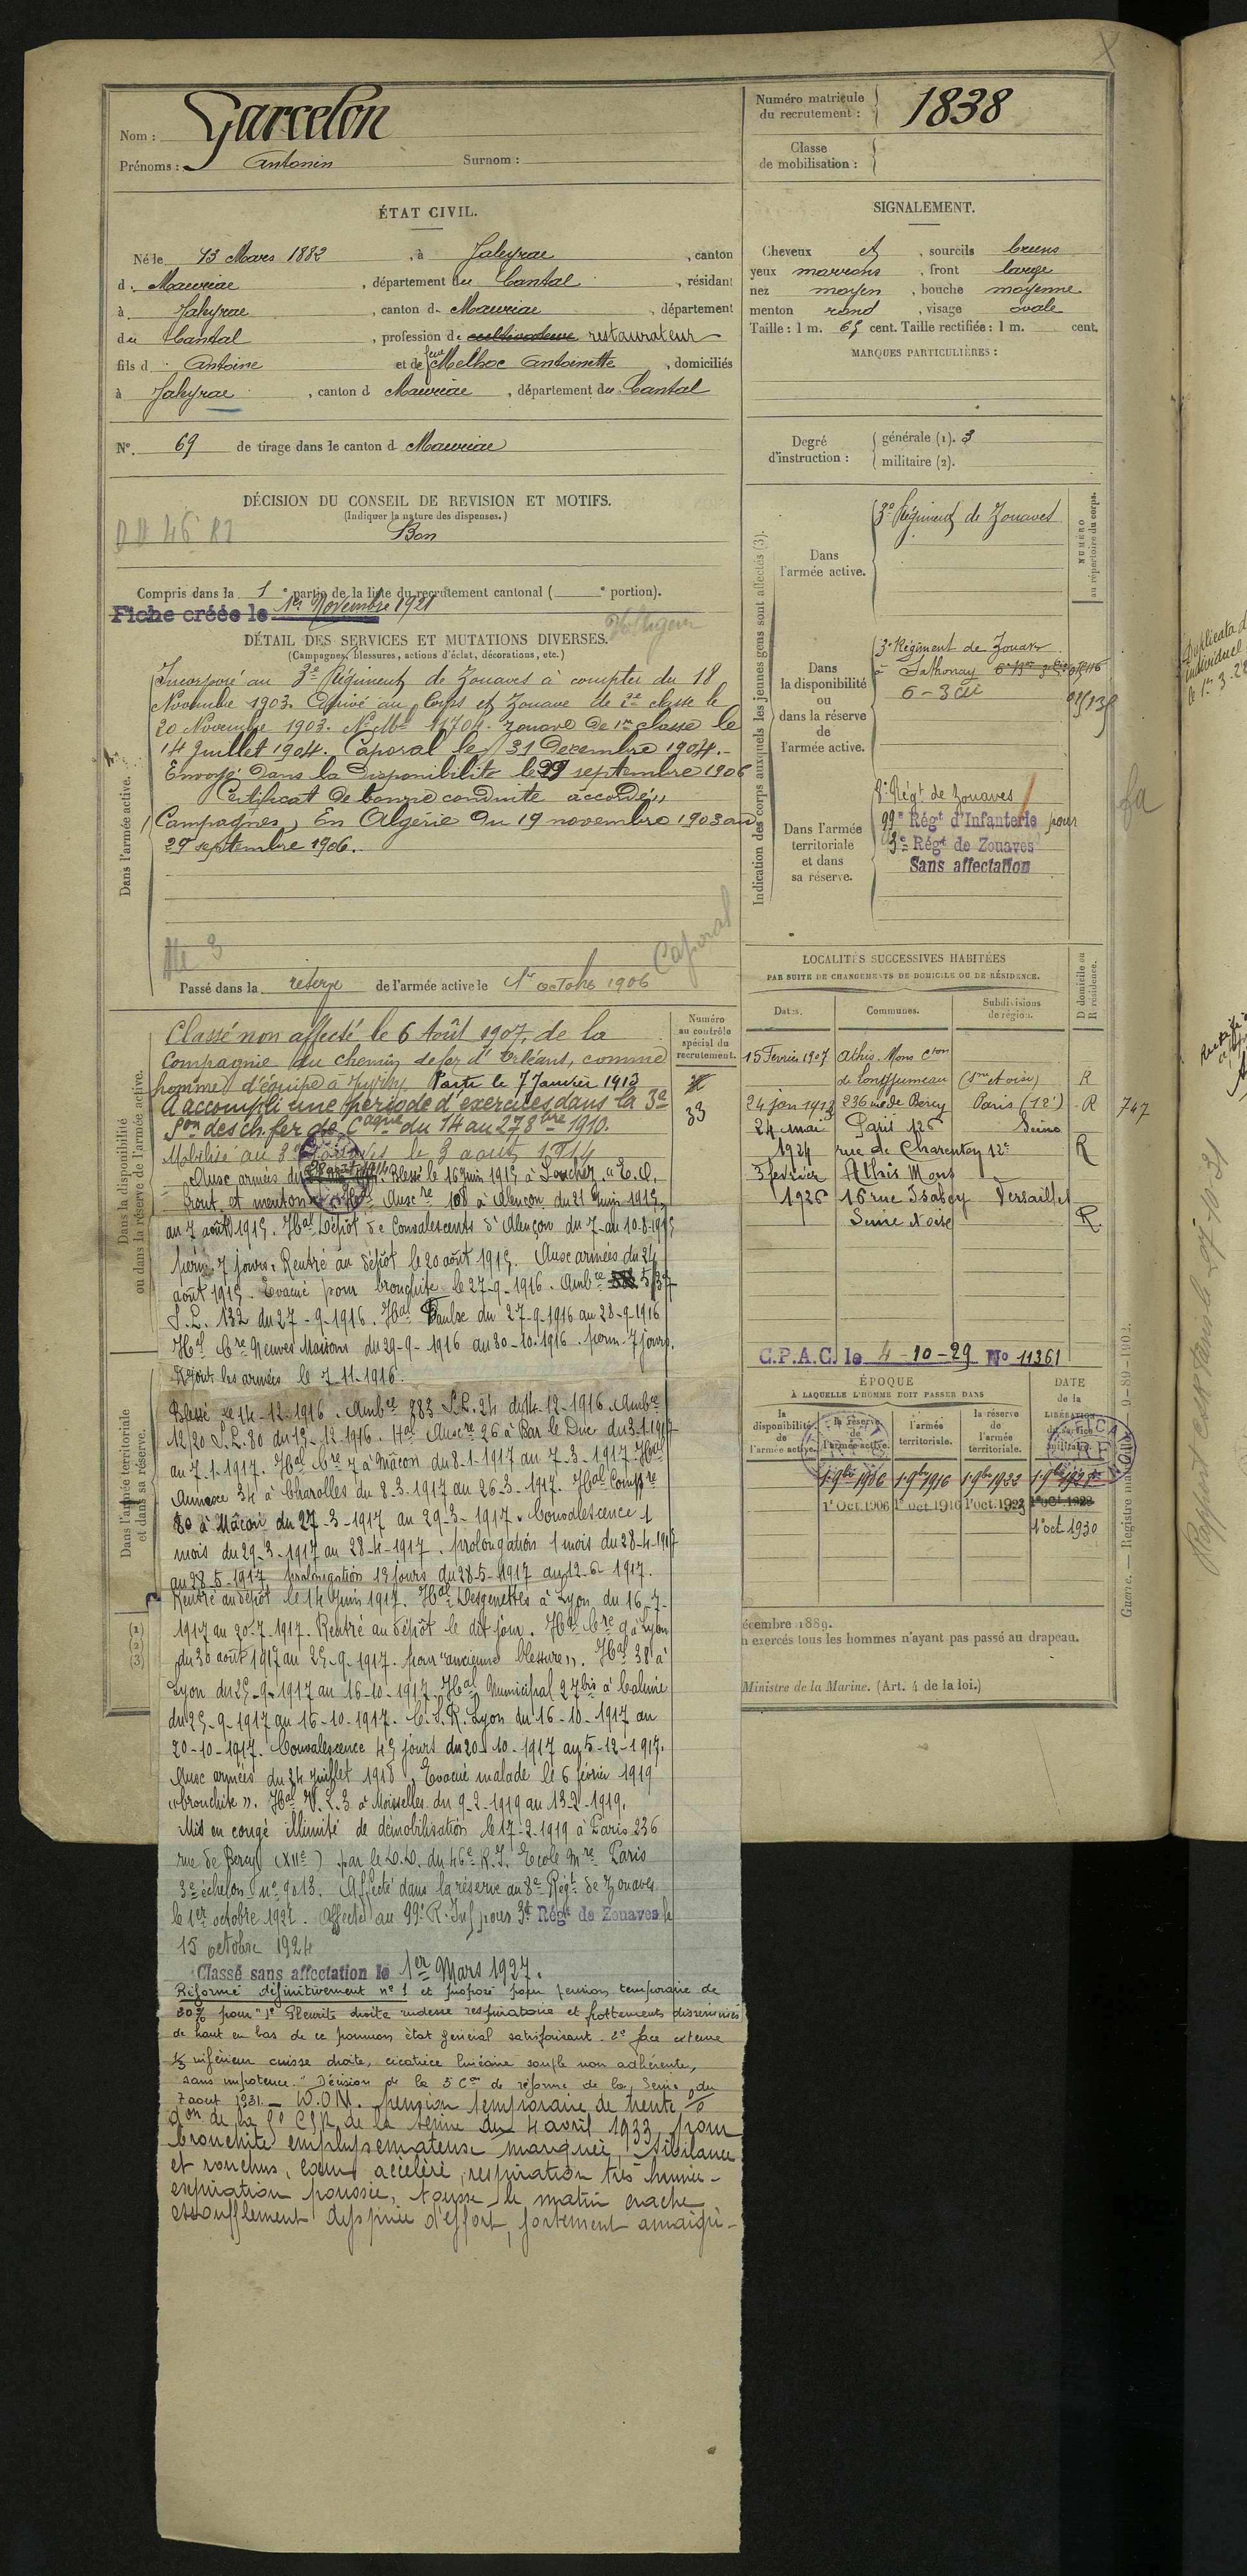 Nom : Garcelon
Prénoms : Antonin Surnom :
Numéro matricule du recrutement : 1838
Classe de mobilisation :
ÉTAT CIVIL.
Né le 13 Mars 1882, à Jaleyrac, canton
d. Mauriac, département du Cantal, résidant
à Jaleyrac, canton d. Mauriac, département
du Cantal, profession d. cultivateur restaurateur
fils d. Antoine et de feue Melhac Antoinette, domiciliés
à Jaleyrac, canton d Mauriac, département du Cantal
N°. 69 de tirage dans le canton d Mauriac
SIGNALEMENT.
Cheveux et, sourcils bruns
yeux marrons, front large
nez moyen, bouche moyenne
menton rond, visage ovale
Taille : 1 m. 65 cent. Taille rectifiée : 1 m. cent.
MARQUES PARTICULIÈRES :
Degré d'instruction : générale (1). 3
militaire (2).
DÉCISION DU CONSEIL DE REVISION ET MOTIFS.
(Indiquer la nature des dispenses.)
Bon
Compris dans la 1e partie de la liste du recrutement cantonal ( e portion).
Fiche créée le 1er Novembre 1921
DÉTAIL DES SERVICES ET MUTATIONS DIVERSES.
(Campagnes, blessures, actions d'éclat, décorations, etc.)
Dans l'armée active.
Incorporé au 3e Régiment de Zouaves à compter du 18
Novembre 1903. Arrivé au Corps et Zouave de 2e classe le
20 Novembre 1903. No Mle 11704. Zouave de 1re classe le
14 Juillet 1904. Caporal le 31 Décembre 1904.-
Envoyé dans la disponibilité le 29 septembre 1906
Certificat de bonne conduite "accordé"
Campagnes, En Algérie du 19 novembre 1903 au
29 septembre 1906.
Caporal
Passé dans la réserve de l'armée active le 1er octobre 1906
Indication des corps auxquels les jeunes gens sont affectés (3).
NUMÉRO au répertoire du corps.
Dans l'armée active.
3e Régiment de Zouaves
Dans la disponibilité ou dans la réserve de l'armée active.
3e Régiment de Zouaves
à Sathonay
Dans l'armée territoriale et dans sa réserve.
8e Régt de Zouaves
99e Régt d'Infanterie pour
3e Régt de Zouaves
Sans affectation
Dans la disponibilité ou dans la réserve de l'armée active.
Numéro au contrôle spécial du recrutement.
33
Classé non affecté le 6 Août 1907, de la
Compagnie du chemin de fer d'Orléans, comme
homme d'équipe à Juvisy. Parti le 7 Janvier 1913
A accompli une période d'exercices dans la 3e
Son des ch. fer de Cagne du 14 au 27 8bre 1910.
Mobilisé au 3e Zouaves le 3 août 1914
Aux armées du 28 août 1914. Blessé le 16 juin 1915 à Souchez. E. O.
front et menton. Hal Auxre 108 à Alençon du 21 juin 1915
au 7 août 1915. Hal Dépôt de Convalescents d'Alençon du 7 au 10.8.1915
perm. 7 jours. Rentré au dépôt le 20 août 1915. Aux armées du 24
août 1915. Evacué pour bronchite le 27-9-1916. Ambce 5/37
S.P. 132 du 27-9-1916. Hal du 27-9-1916 au 28-9-1916
Hal Cre Neuves Maisons du 29-9-1916 au 30-10-1916. perm. 7 jours.
Rejoint les armées le 7-11-1916.
Dans l'armée territoriale et dans sa réserve.
Blessé le 14-12-1916. Ambce S.P. 24 du 14-12-1916. Ambce
12/20 S.P. 80 du 15-12-1916. Hal Auxre 26 à Bar le Duc du 3.1.1917
au 7-1-1917. Hal Cre 7 à Mâcon du 8-1-1917 au 7-3-1917. Hal
Annexe 34 à Charolles du 8-3-1917 au 26-3-1917. Hal Compre
80 à Mâcon du 27-3-1917 au 29-3-1917. Convalescence 1
mois du 29-3-1917 au 28-4-1917. prolongation 1 mois du 28-4-1917
au 28-5-1917 prolongation 15 jours du 28-5-1917 au 12-6-1917.
Rentré au dépôt le 14 Juin 1917. Hal Desgenettes à Lyon du 16-7-
1917 au 20-7-1917. Rentré au dépôt le dit jour. Hal Cre 9 à Lyon
du 30 août 1917 au 25-9-1917. pour "ancienne blessure". Hal 38 à
Lyon du 25-9-1917 au 16-10-1917. Hal Municipal 27 bis à Caluire
du 25-9-1917 au 16-10-1917. C.S.R. Lyon du 16-10-1917 au
20-10-1917. Convalescence 45 jours du 20-10-1917 au 5-12-1917.
Aux armées du 24 Juillet 1918. Evacué malade le 6 février 1919
"bronchite". Hal V.L.3 à Moisselles du 9-2-1919 au 13-2-1919.
Mis en congé illimité de démobilisation le 17-2-1919 à Paris 236
rue de Bercy (XIIe) par le D.D. du 46e R.I. Ecole Mre Paris
3e échelon no 9013. Affecté dans la réserve au 8e Régt de Zouaves
le 1er octobre 1921. Affecté au 99e R. Inf pour 3e Régt de Zouaves le
15 octobre 1924
Classé sans affectation le 1er Mars 1927.
Réformé définitivement no 1 et proposé pour pension temporaire de
30% pour "1° Pleurite droite rudesse respiratoire et frottements disséminés
de haut en bas de ce poumon état général satisfaisant. 2° face externe
1/3 inférieur cuisse droite, cicatrice linéaire souple non adhérente,
sans impotence." Décision de la 5e Con de réforme de la Seine du
7 août 1931. – pension temporaire de trente %
don de la CSR de la Seine du 4 avril 1933, pour
bronchite emphysémateuse marquée, sibilance
et ronchus, cœur accéléré, respiration très humée -
expiration poussée, tousse le matin crache
essoufflement dyspnée d'effort, fortement amaigri -
LOCALITÉS SUCCESSIVES HABITÉES
PAR SUITE DE CHANGEMENTS DE DOMICILE OU DE RÉSIDENCE.
Dates. Communes. Subdivisions de région. D domicile ou R résidence.
15 Février 1907 Athis-Mons Cton
de Longjumeau (Sne et Oise) R
24 jan 1913 236 rue de Bercy Paris (12e) R
24 mai 1924 Paris 12e Seine
rue de Charenton 12e R
3 février 1926 Athis Mons
16 rue Isabey Versailles
Seine et Oise R.
747
C.P.A.C. le 4-10-29 No 11361
ÉPOQUE
À LAQUELLE L'HOMME DOIT PASSER DANS
DATE de la LIBÉRATION du service militaire.
la disponibilité de l'armée active. la réserve de l'armée active. l'armée territoriale. la réserve de l'armée territoriale.
1er 9bre 1906 1er 9bre 1916 1er 9bre 1922
1er Oct. 1906 1er oct. 1916 1er oct. 1923 1er Oct. 1928
1er oct 1930
(1)
(2)
(3)
écembre 1889.
n exercés tous les hommes n'ayant pas passé au drapeau.
Ministre de la Marine. (Art. 4 de la loi.)